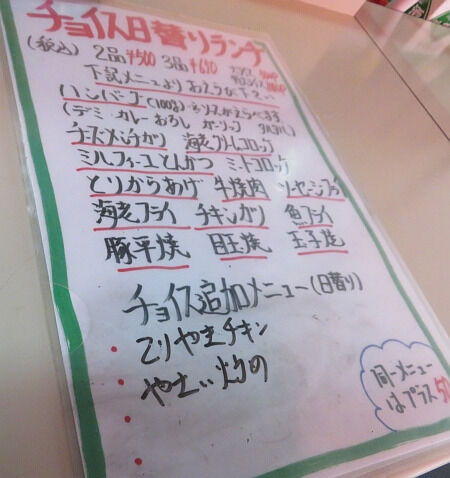 チョイス日替りランチ
(税込) 2品¥500 3品¥610 プラス
下記メニューよりおえらび下さい
ハンバーグ(100g)ソースがえらべます
(デミ・カレー おろし ガーリック
チーズメンチカツ 海老クリームコロッケ
ミルフィーユとんかつ ミートコロッケ
とりからあげ 牛焼肉 ソーセージフライ
海老フライ チキンカツ 魚フライ
豚平焼 目玉焼 玉子焼
チョイス追加メニュー(日替り)
・てりやきチキン
・やさい炒め
同一メニュー
はプラス50